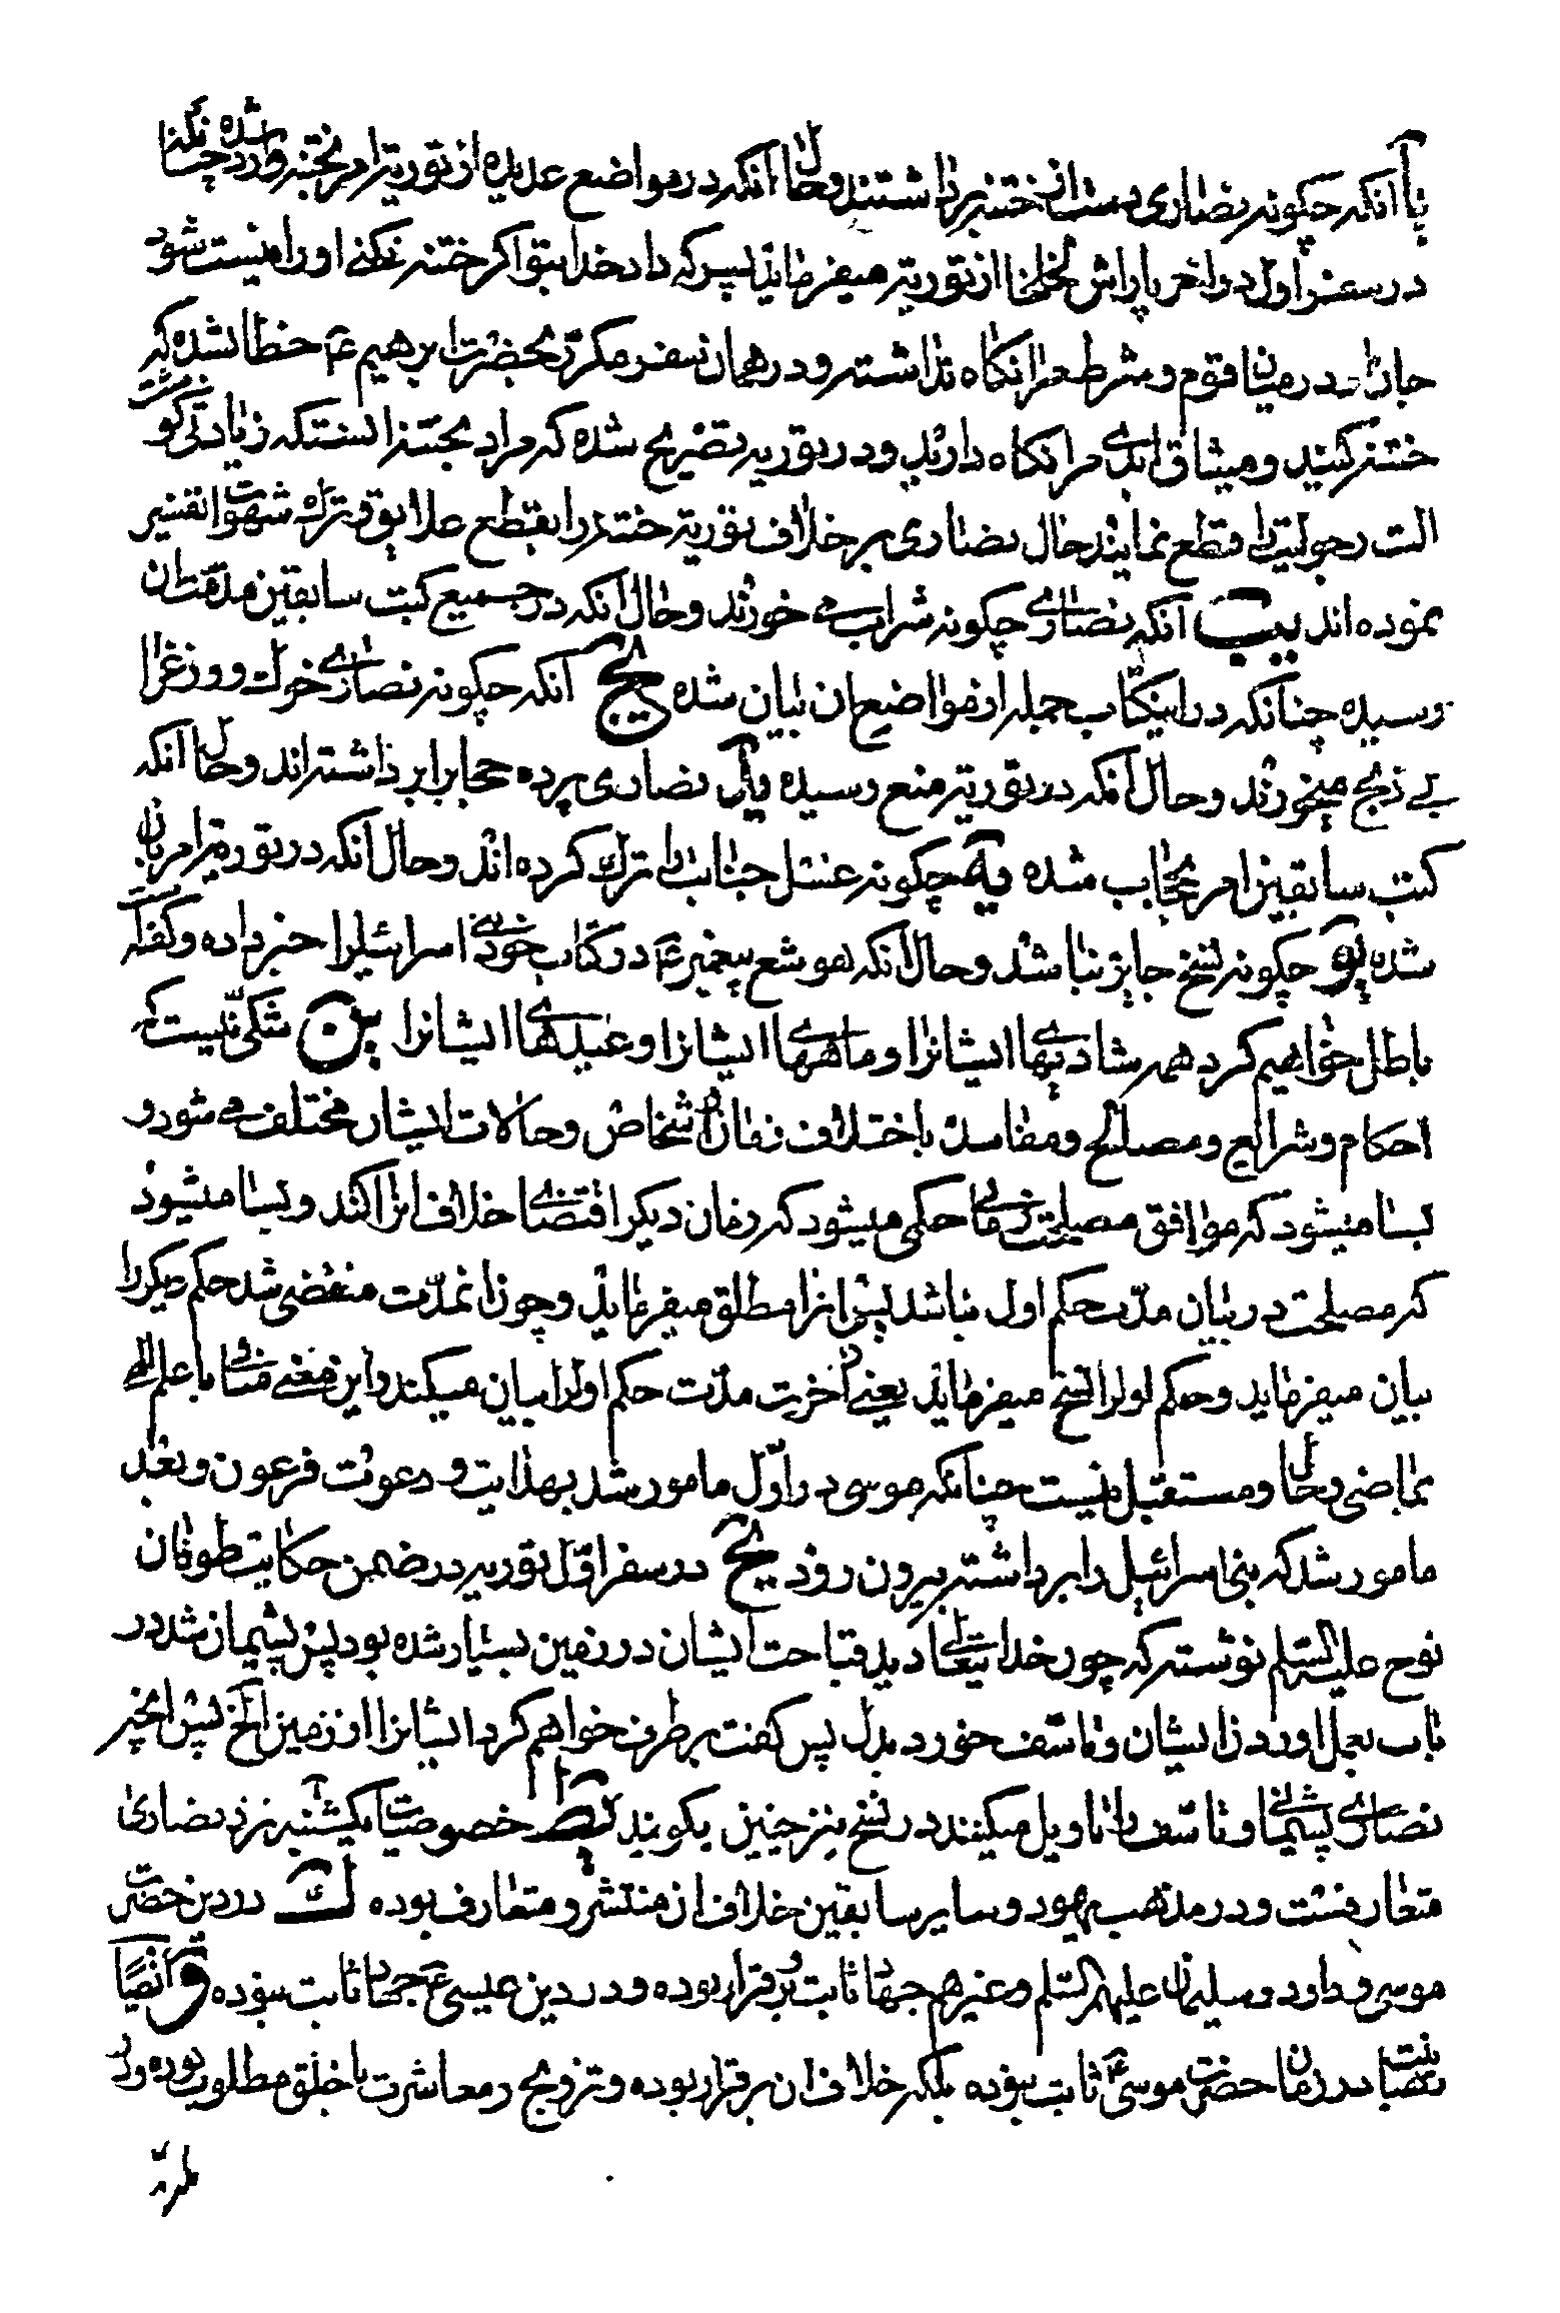 یا آنکه چکونه نصاری دست از ختنه برداشتند و حال آنکه در مواضع عدیده از توریة امر بختنه وارد شده چنانکه
در سفر اول در اخر پاراش لخلخا از توریة میفرماید پسر که داد خدا بتو اکر ختنه نکنی او را نیست شود
جان در میان قوم و شرط مرا نکاه نداشته و در همان سفر مکرّر بحضرت ابرهیم ع خطاب شده که
ختنه کنید و میثاق ابدی مرا نکاه دارید و در توریه تصریح شده که مراد بختنه انستکه زیادتی کوشت
الت رجولیت را قطع نمایند حال نصاری بر خلاف توریة ختنه را بقطع علایق و ترک شهوات تفسیر
نموده اند یب آنکه نصاری چکونه شراب می خورند و حال آنکه در جمیع کتب سابقین مذمّت ان
رسیده چنانکه در اینکتاب جمله از مواضع ان بیان شده یج آنکه چکونه نصاری خوک و وزغ را
بی ذبح میخورند و حال آنکه در توریة منع رسیده ید نصاری پرده حجاب را برداشته اند و حال آنکه
کتب سابقین امر بحجاب شده یه چکونه غسل جنابت را ترک کرده اند و حال آنکه در توریة امر بان
شده یو چکونه نسخ جایز نباشد و حال آنکه هوشع پیغمبر ع در کتاب خود بنی اسرائیل را خبر داده و کفته که
باطل خواهیم کرد همه شادیهای ایشانرا و ماههای ایشانرا و عیدهای ایشانرا یز شکی نیست که
احکام و شرایع و مصالح و مفاسد باختلاف زمان و اشخاص و حالات ایشان مختلف می شود و
بسا میشود که موافق مصلحت زمانی حکمی میشود که زمان دیکر اقتضای خلاف انرا کند و بسا میشود
که مصلحت در بیان مدّت حکم اول نباشد پس انرا مطلق میفرماید و چون انمدّت منقضی شد حکم دیکر را
بیان میفرماید و حکم اول را نسخ میفرماید یعنی آخریت مدّت حکم اول را بیان میکند و این معنی منافی با علم الهی
بماضی و حال و مستقبل نیست چنانکه موسی در اوّل مامور شد بهدایت و دعوت فرعون و بعد
مامور شد که بنی اسرائیل را برداشته بیرون رود یح در سفر اوّل توریه در ضمن حکایت طوفان
نوح علیه السّلم نوشته که چون خدایتعالی دید قباحت ایشان در زمین بسیار شده بود پس پشیمان شد در
باب بعمل اوردن ایشان و تاسّف خورد بدل پس کفت برطرف خواهم کرد ایشانرا از زمین الخ پس انچه
نصاری پشیمانی و تاسّف را تاویل میکنند در نسخ نیز چنین بکویند یط خصوصیات یکشنبه نزد نصاری
متعارفست و در مذهب یهود و سایر سابقین خلاف ان منتشر و متعارف بوده ک در دین حضرت
موسی و داود و سلیمان علیهم السّلم و غیرهم جهاد ثابت و برقرار بوده و در دین عیسی ع جهاد ثابت نبوده و ایضًا
در زمان حضرت موسی ع ثابت نبوده بلکه خلاف ان برقرار بوده و تزویج و معاشرت با خلق مطلوب بوده و در